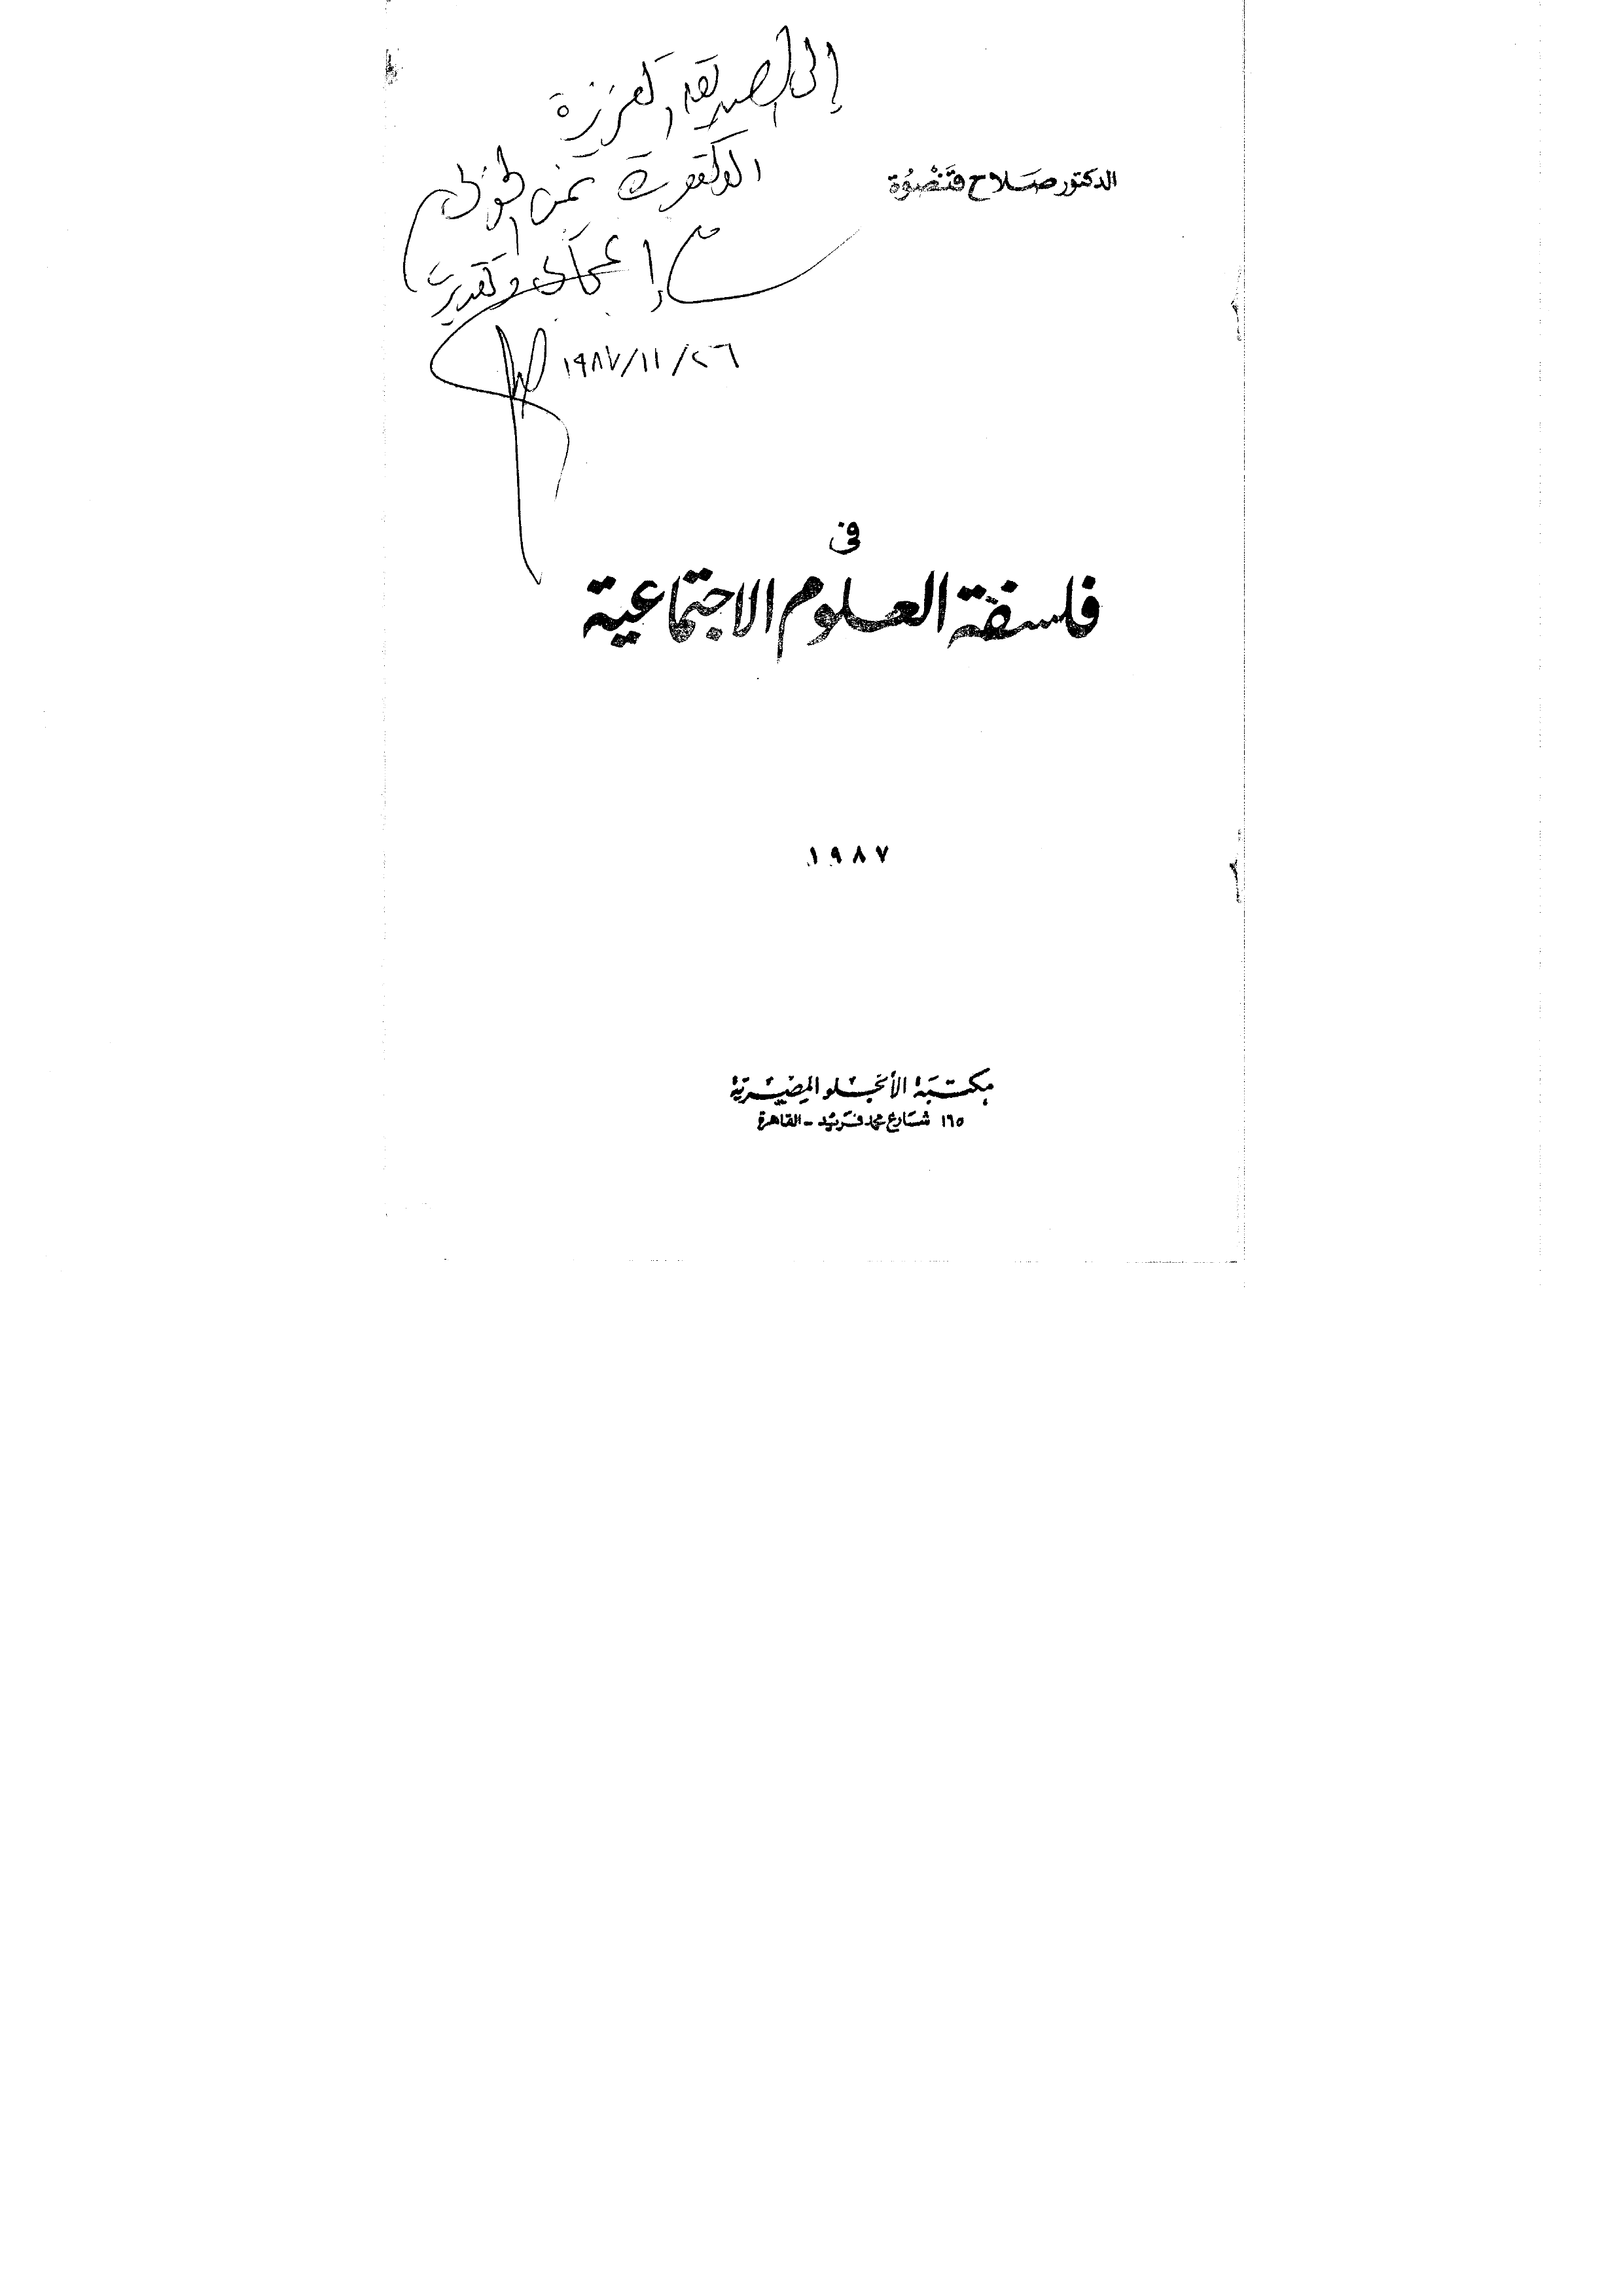 إلى الصديقة العزيزة
الدكتورة يمنى الخولى
مع إعجابى وتقديرى
١٩٨٧/١١/٢٦
الدكتور صلاح قنصوة
فى
فلسفة العلوم الاجتماعية
١٩٨٧
مكتبة الأنجلو المصرية
١٦٥ شارع محمد فريد - القاهرة